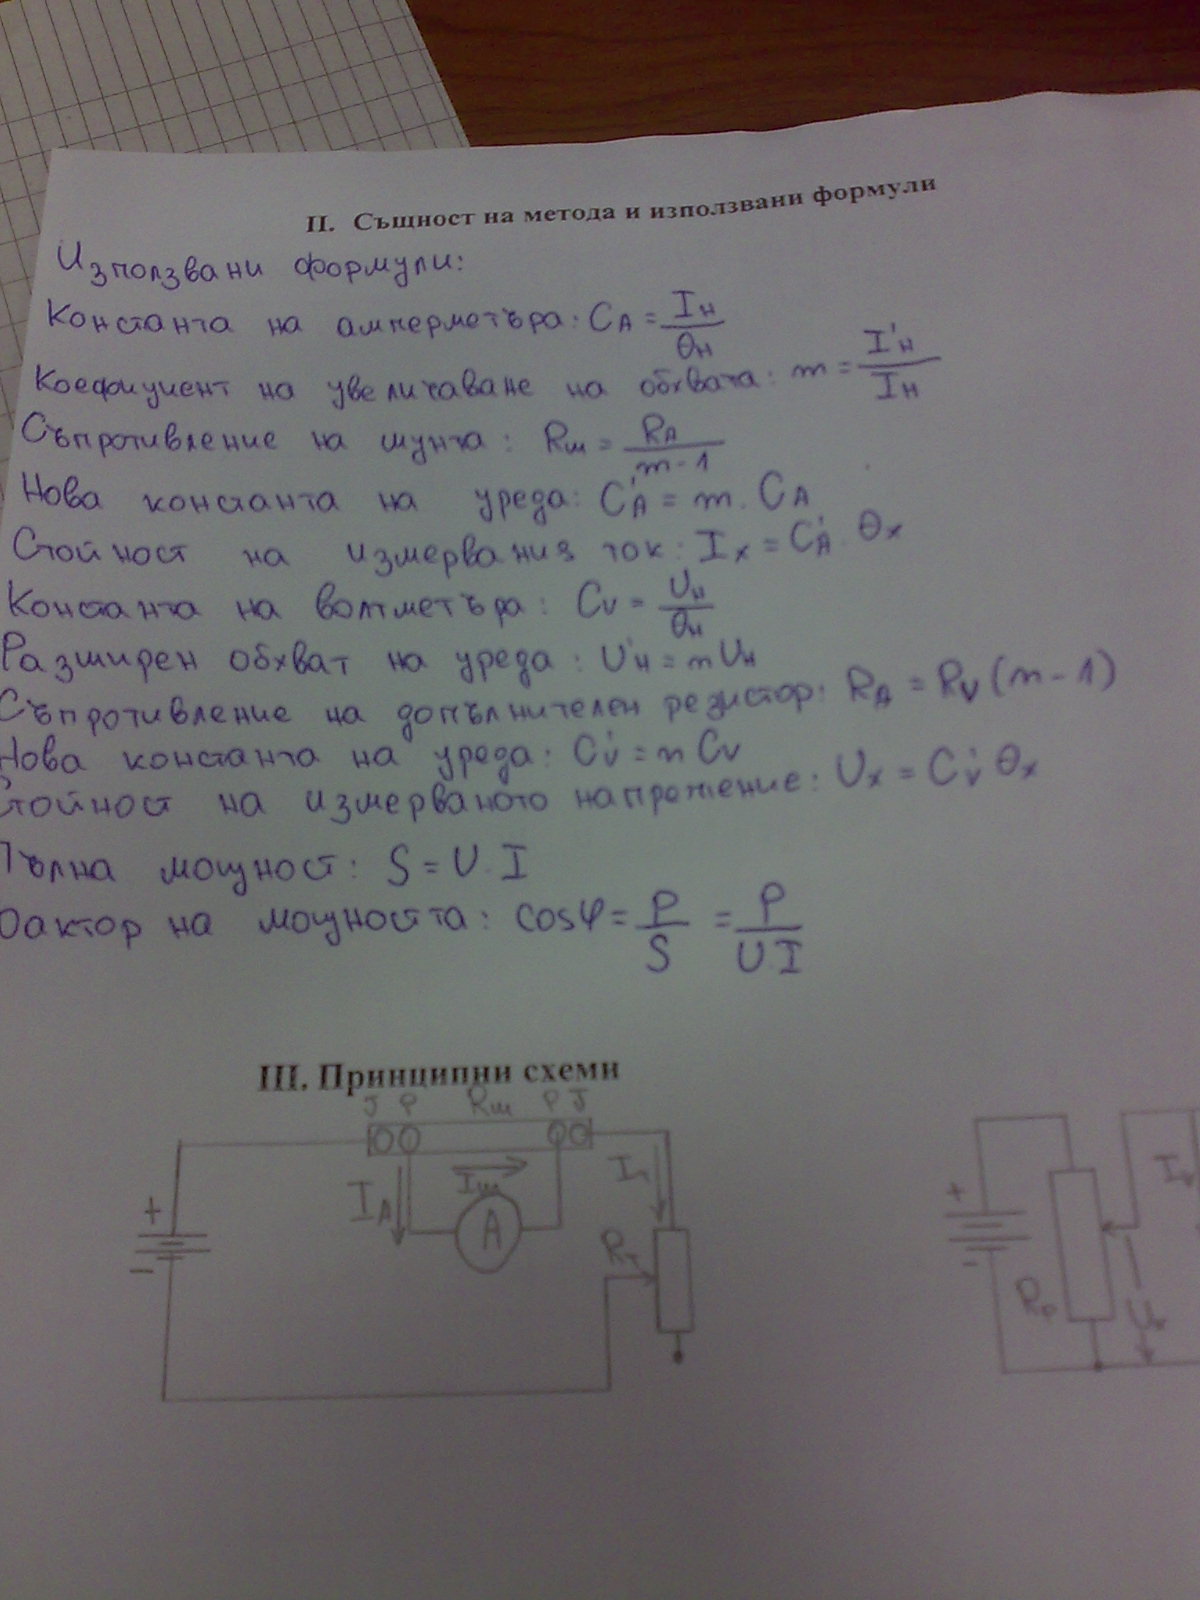 II. Същност на метода и използвани формули
Използвани формули:
Константа на амперметъра: C_A = I_н / θ_н
Коефициент на увеличаване на обхвата: m = I'_н / I_н
Съпротивление на шунта: R_ш = R_A / m-1
Нова константа на уреда: C'_A = m . C_A
Стойност на измервания ток: I_x = C'_A . θ_x
Константа на волтметъра: C_V = U_н / θ_н
Разширен обхват на уреда: U'_н = n U_н
Съпротивление на допълнителен резистор: R_д = R_V (n - 1)
Нова константа на уреда: C'_V = n C_V
Стойност на измерваното напрежение: U_x = C'_V θ_x
Пълна мощност: S = U . I
Фактор на мощността: cosφ = P / S = P / U.I
III. Принципни схеми
J P R_ш P J
I_A I_ш
+ A
-
+
-
R_P